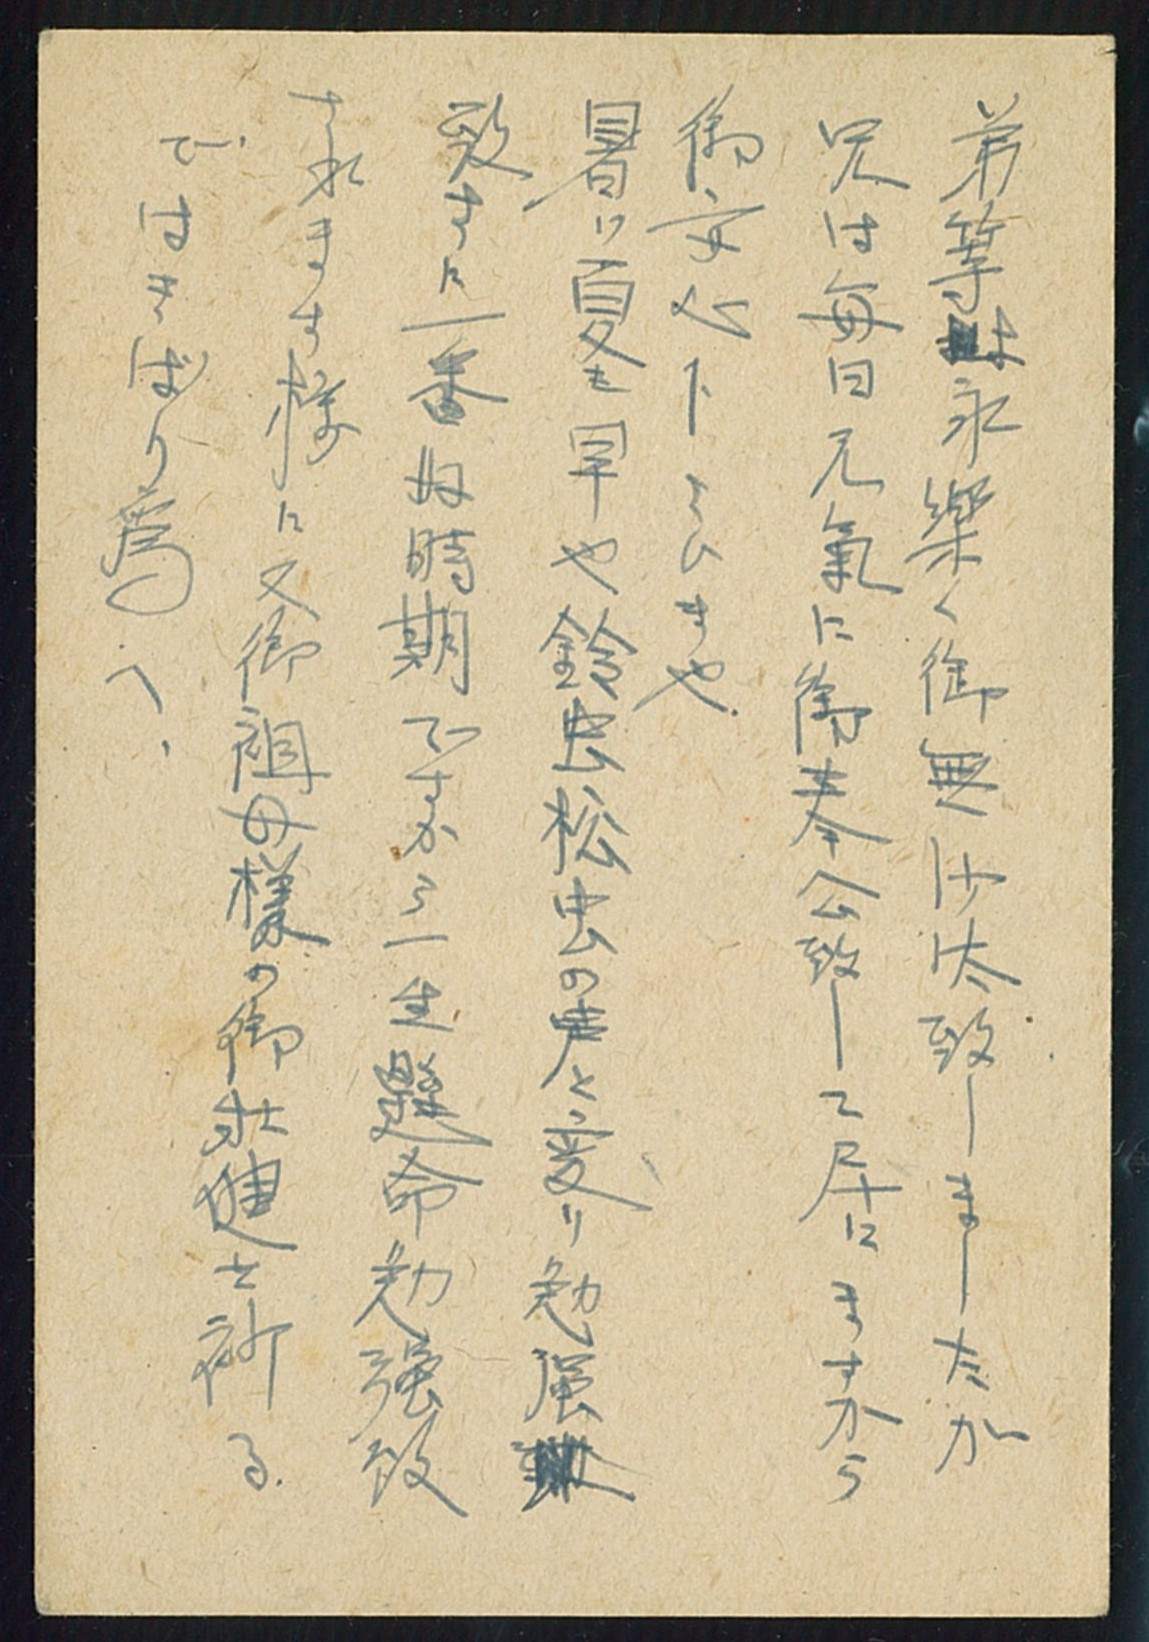 弟等よ永らく御無沙汰致しましたが
兄は毎日元氣に御奉公致して居りますから
御安心下さいませ
暑い夏も早や鈴虫松虫の声と変り勉强
致すに一番好時期ですから一生懸命勉强致
されます様に又御祖母様の御壮健を祈る
ではさらばり